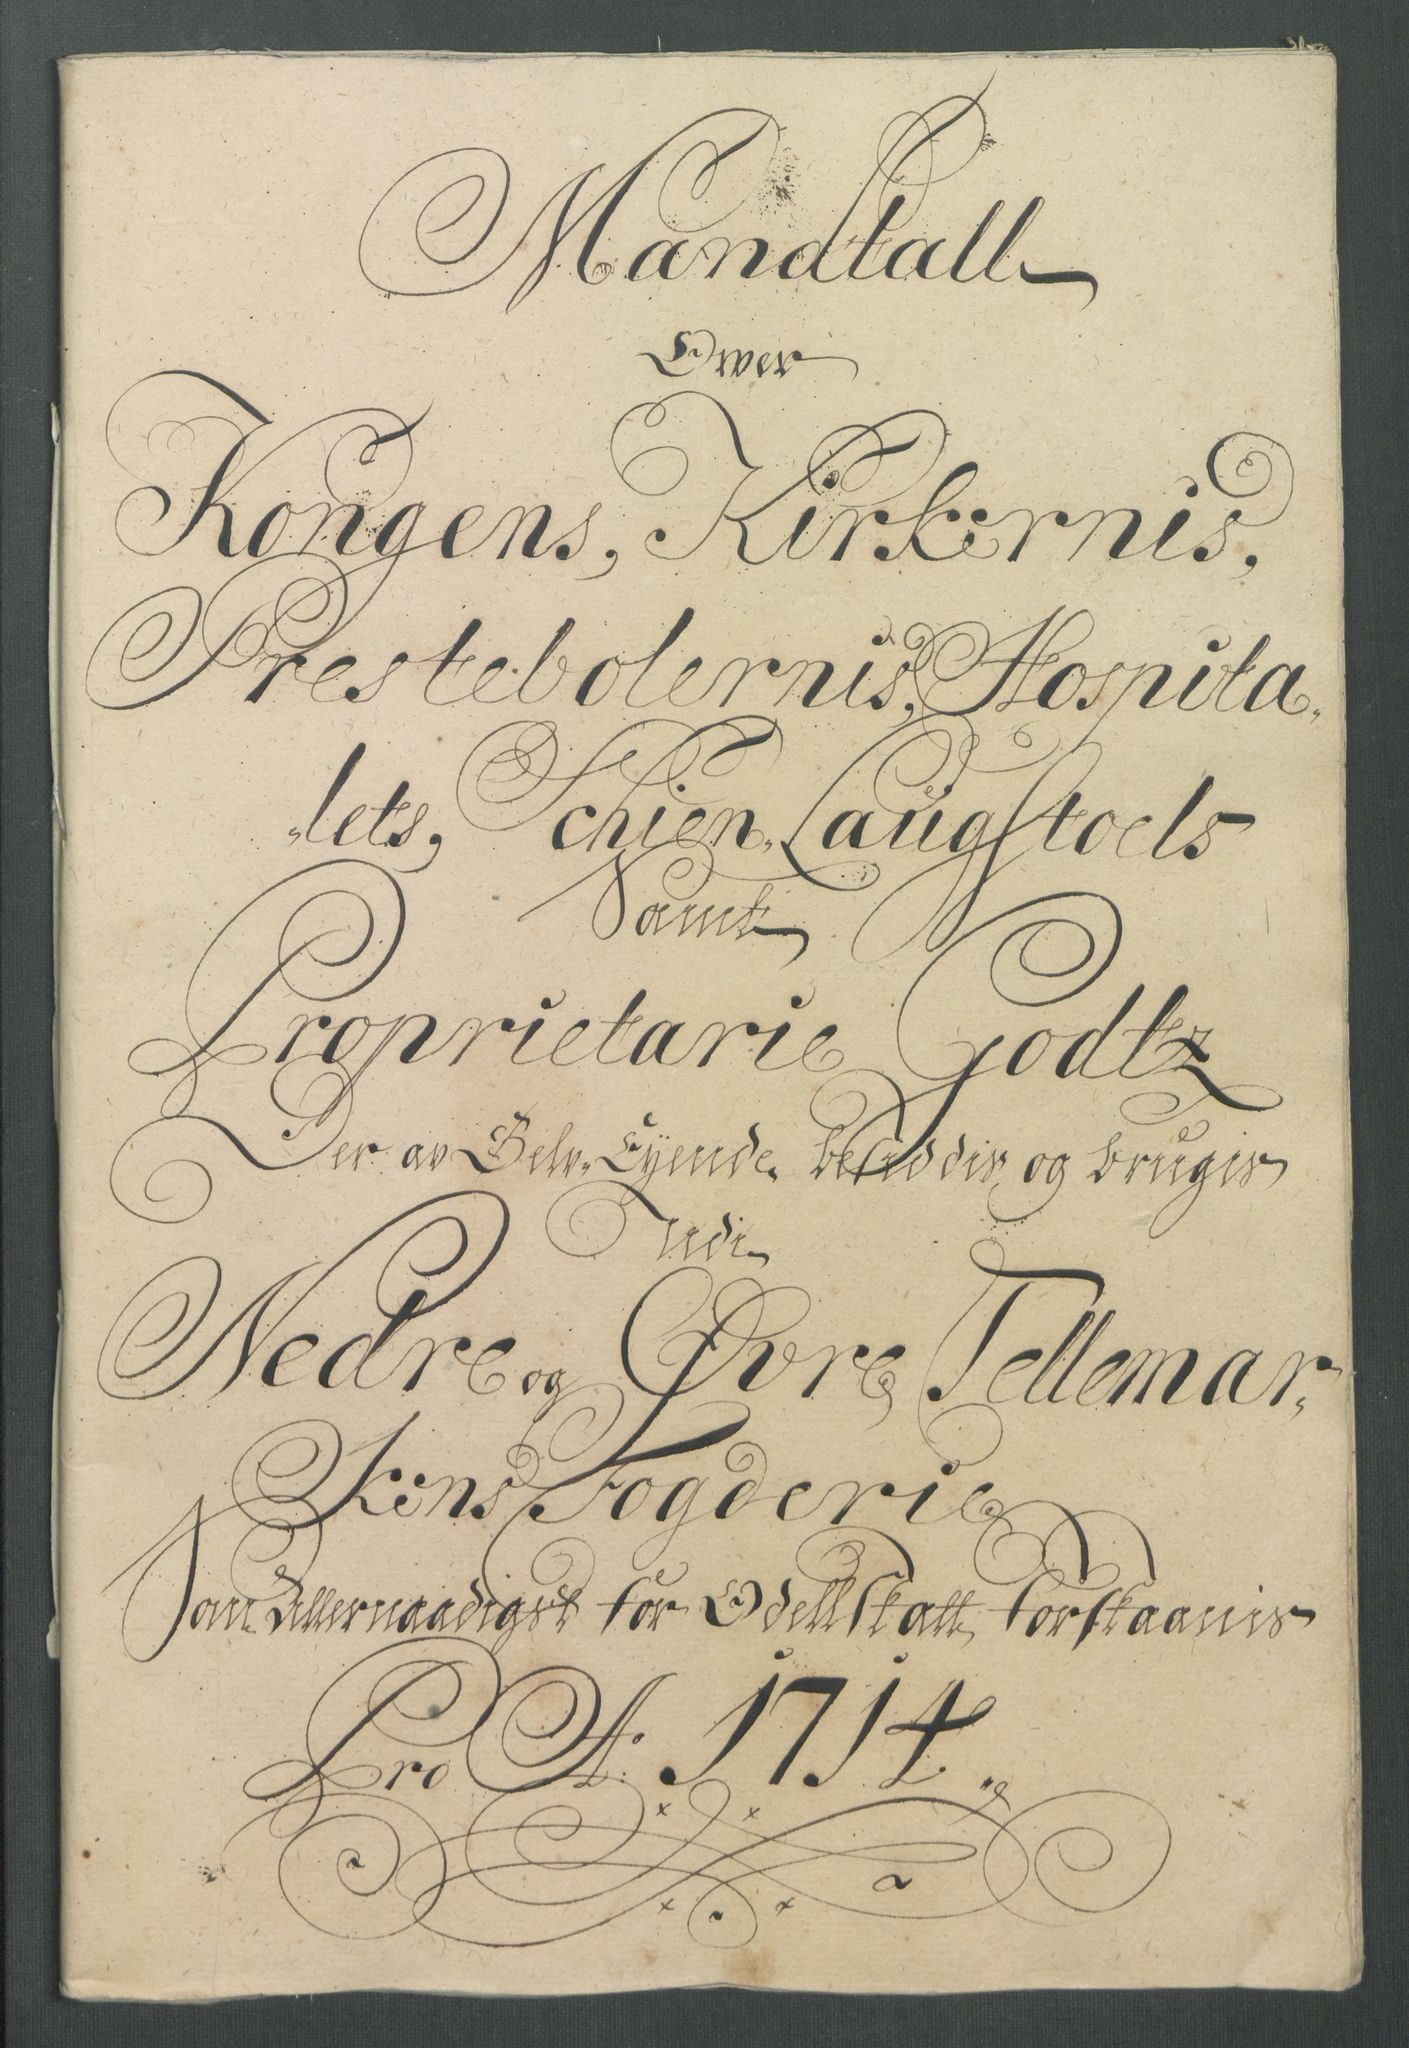 Mandtall
Over
Kongens, Kirkernis,
Prestebolernis, Hospita-
-lets, Schien, Laugstoels
Samt
Proprietarie Godtz
Der av Selv Eyende besiddis og brugis
Udi
Nedre og Øvre Tellemar-
kens Fogderie
Som Allernaadigst for Odellskatt forskaanis
Pro A: 1714